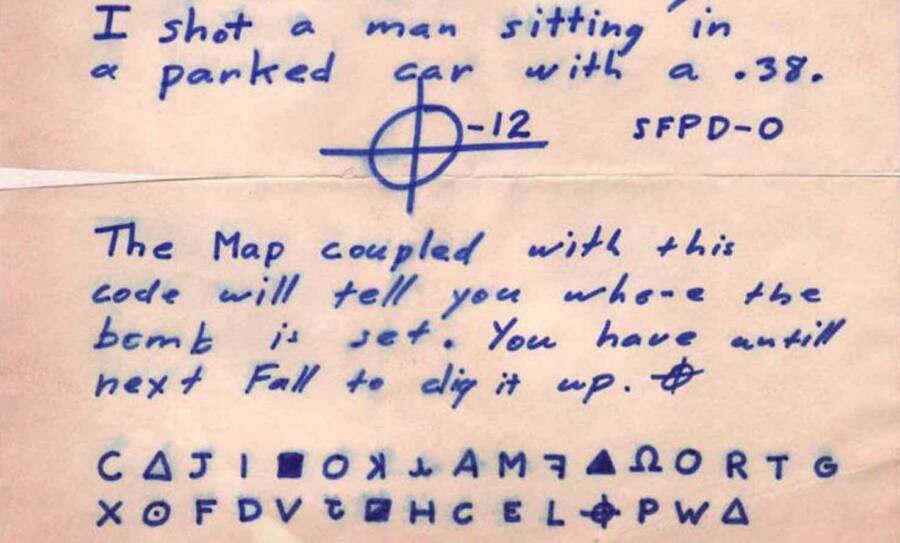 I shot a man sitting in
a parked car with a .38.
-12 SFPD-0
The Map coupled with this
code will tell you who-e the
bomb is set. You have untill
next Fall to dig it up. ⌖
C Δ J I ■ O ꓘ ⅄ A M ꟻ ▲ Ω O R T G
X ⊙ F D V Ƹ ◪ H C E L ⌖ P W Δ